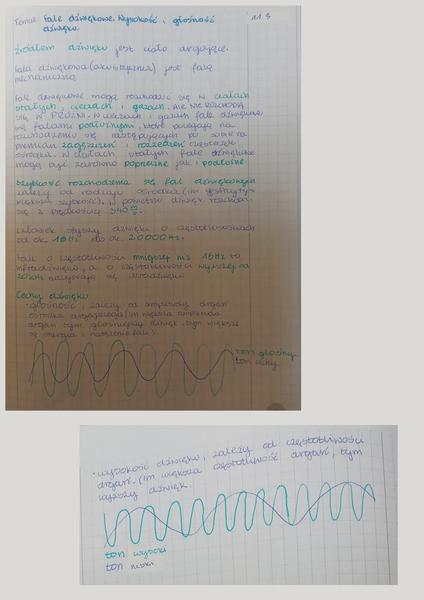 Temat: Fale dźwiękowe. Wysokość i głośność
dźwięku.
11.3
Źródłem dźwięku jest ciało drgające.
Fala dźwiękowa (akustyczna) jest falą
mechaniczną
Fale dźwiękowe mogą rozchodzić się w ciałach
stałych, cieczach i gazach. NIE ROZCHODZĄ
SIĘ W PRÓŻNI. W cieczach i gazach fale dźwiękowe
są falami podłużnymi, które polegają na
rozchodzeniu się następujących po sobie
przemian zagęszczeń i rozrzedzeń cząsteczek
ośrodka. W ciałach stałych fale dźwiękowe
mogą być zarówno poprzeczne jak i podłużne
Szybkość rozchodzenia się fal dźwiękowych
zależy od rodzaju ośrodka (im
większa szybkość). W powietrzu dźwięk rozchodzi
się z prędkością 340 m/s.
Człowiek słyszy dźwięki o częstotliwościach
od ok. 16Hz do ok. 20000Hz.
Fale o częstotliwości mniejszej niż 16Hz to
infradźwięki, a o częstotliwości wyższej od
20kHz nazywają się ultradźwięki.
Cechy dźwięku
• głośność, zależy od amplitudy drgań
ośrodka drgającego (im większa amplituda
drgań tym głośniejszy dźwięk, tym większe
są energia i natężenie fali).
ton głośny
ton cichy
• wysokość dźwięku, zależy od częstotliwości
drgań. (im większa częstotliwość drgań, tym
wyższy dźwięk.
ton wysoki
ton niski